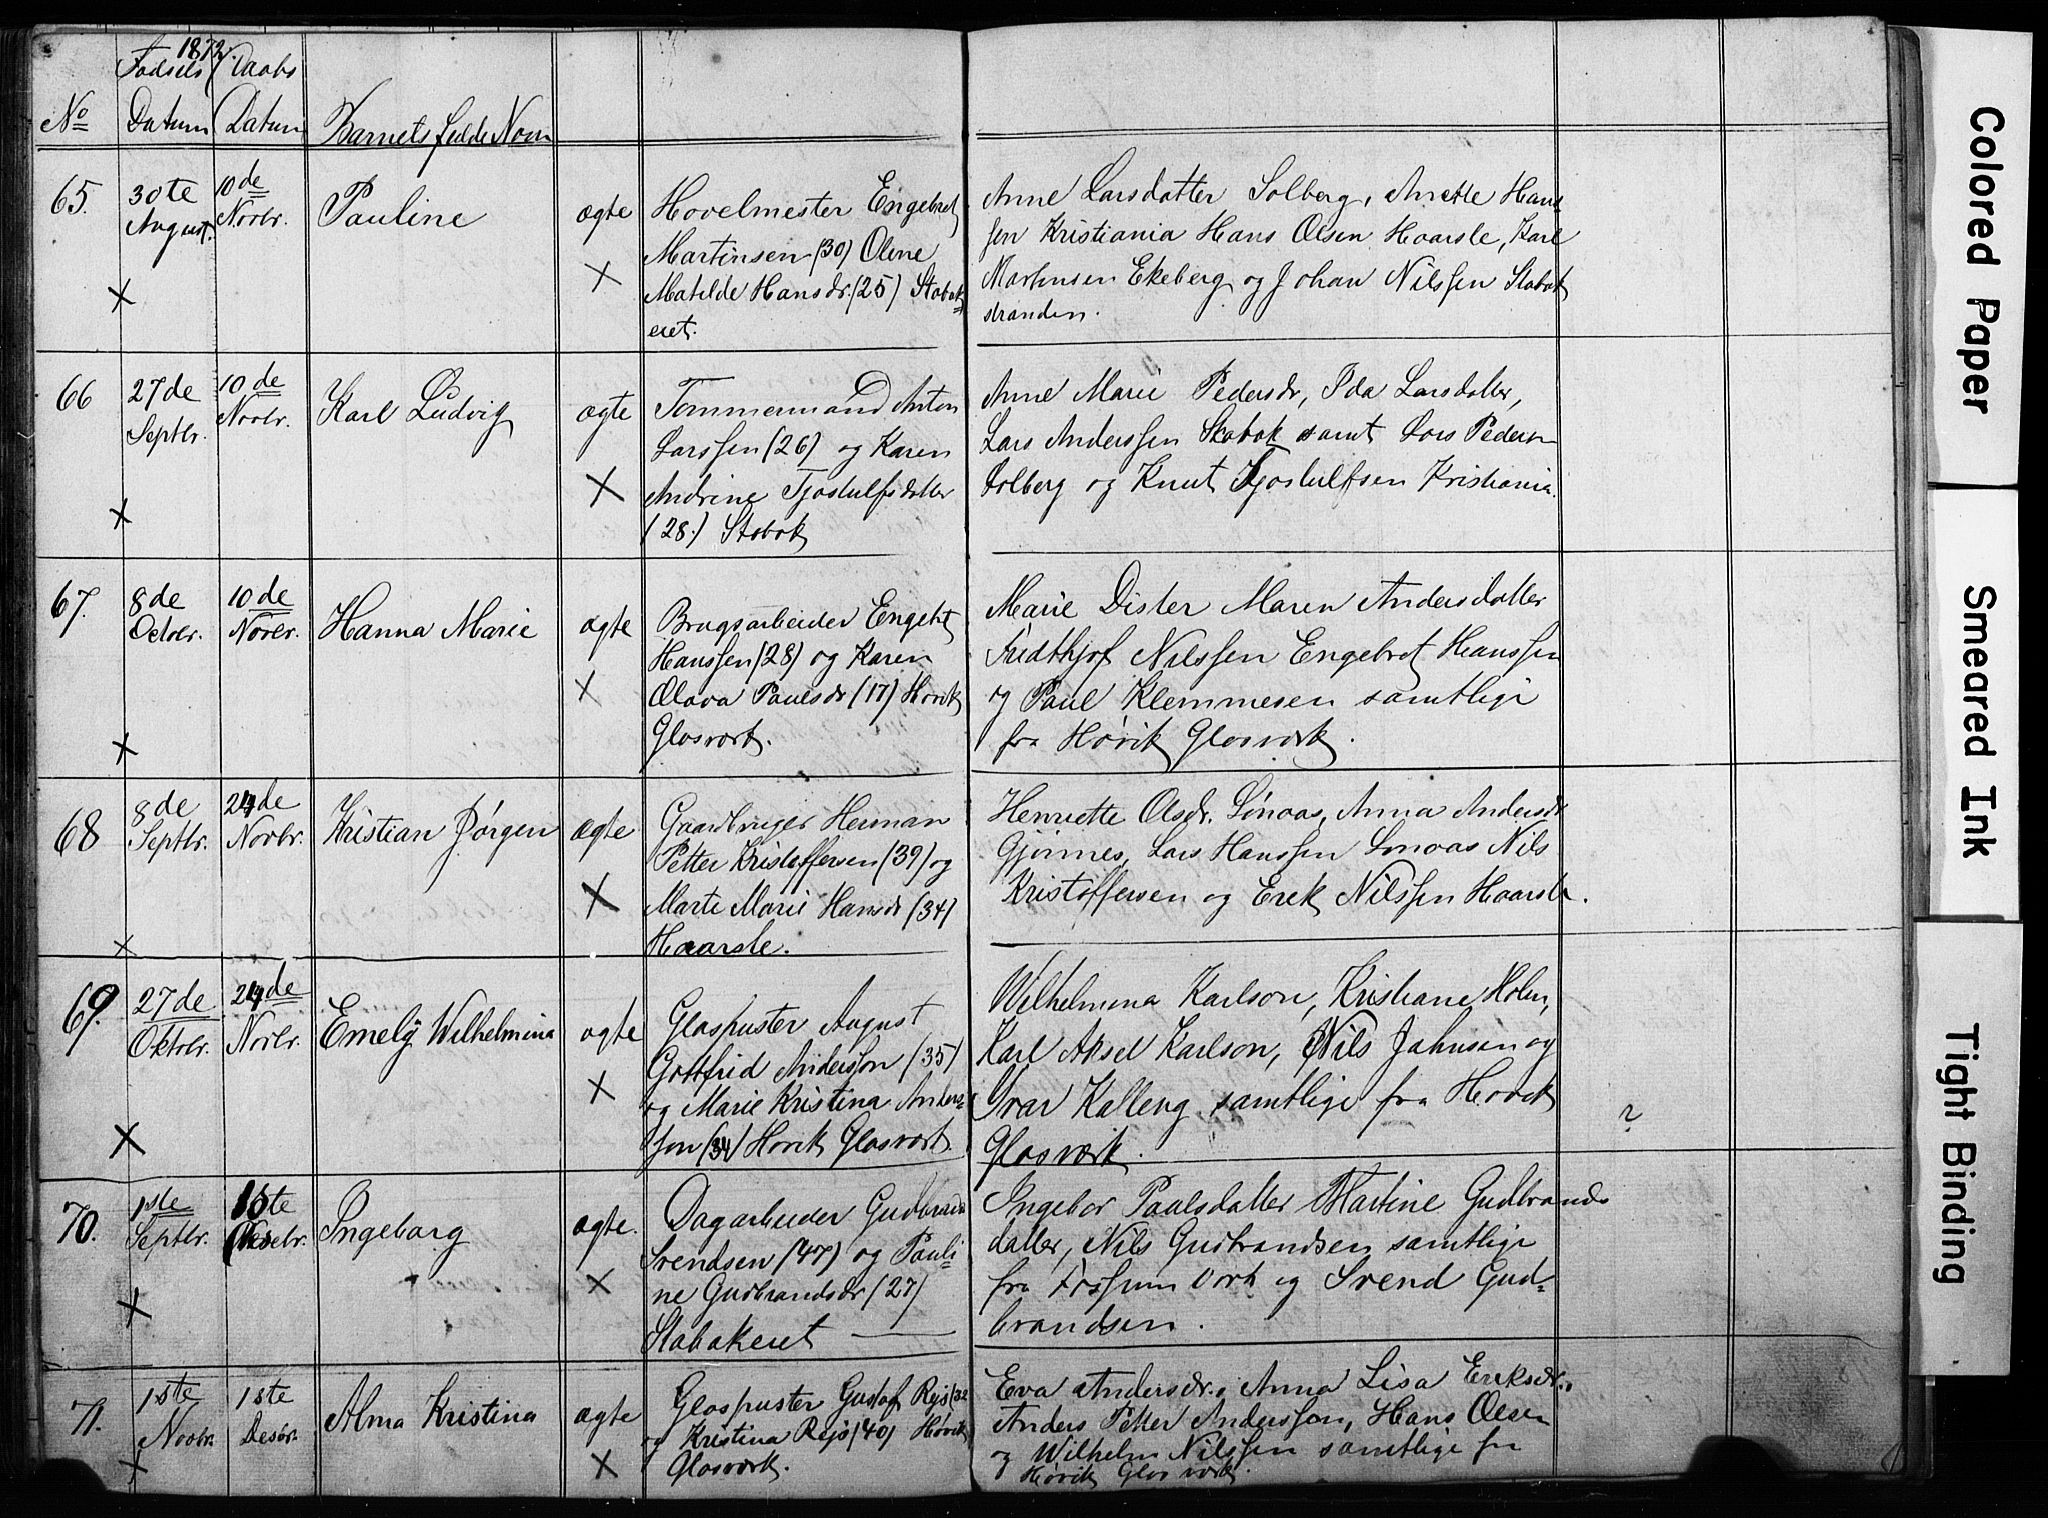 1872.
Fødsels Daabs
No Datum Datum Barnets fulde Navn
65. 30te August. 10de Novbr. Pauline ægte
Hovelmester Engebret
Martinsen (30) Olene
Matilde Hansdr. (25) Stabæk=
eret.
Anne Larsdatter Solberg, Anette Hans=
sen Kristiania Hans Olsen Haarsle, Karl
Martinsen Ekeberg og Johan Nilssen Stabæk
stranden.
66 27de Septbr. 10de Novbr. Karl Ludvig ægte
Tømmermand Anton
Larssen (26) og Karen
Andrine Tjostulfsdatter
(28.) Stabæk
Anne Marie Pedersdr, Ida Larsdatter,
Lars Anderssen Stabæk samt Lars Pedersen
Solberg og Knut Tjostulfsen Kristiania.
67. 8de Octobr. 10de Novbr. Hanna Marie ægte
Brugsarbeider Engebt
Hanssen (28) og Karen
Olava Paulsdr (17) Høvik
Glasværk.
Marie Dister Maren Andersdatter
Fridthjof Nilssen Engebret Hanssen
og Paul Klemmesen samtlige
fra Høvik Glasværk.
68 8de Septbr. 24de Novbr. Kristian Jørgen ægte
Gaardbruger Herman
Petter Kristoffersen (39) og
Marte Marie Hansdr (34)
Haarsle.
Henriette Olsdr. Sønaas, Anna Andersdr
Gjønnes, Lars Hanssen Sønaas Nils
Kristoffersen og Erek Nilssen Haarsle.
69. 27de Oktobr. 24de Novbr. Emely Wilhelmina ægte
Glaspuster August
Gottfrid Andersson (35)
og Marie Kristina Anders=
son (34) Høvik Glasværk.
Wilhelmina Karlson, Kristiane Holm,
Karl Aksel Karlson, Nils Jahnsen og
Ivar Kalleng samtlige fra Høvik
Glasværk.
?
70. 1ste Septbr. 1ste Desebr. Ingeborg ægte.
Dagarbeider Gudbrand
Svendsen (47) og Pauli=
ne Gudbrandsdr (27)
Stabækeret
Ingebor Paulsdatter Martine Gudbrands
datter, Nils Gudbrandsen samtlige
fra Fossum Værk og Svend Gud=
brandsen.
71. 1ste Novbr. 1ste Desbr. Alma Kristina ægte
Glaspuster Gustaf Rejs (32
og Kristina Rejs (40) Høvik
Glasværk.
Eva Andersdr., Anna Lisa Eriksdr.,
Anders Petter Andersson, Hans Olsen
og Wilhelm Nilssen samtlige fra
Høvik Glasværk.
Colored Paper
Smeared Ink
Tight Binding